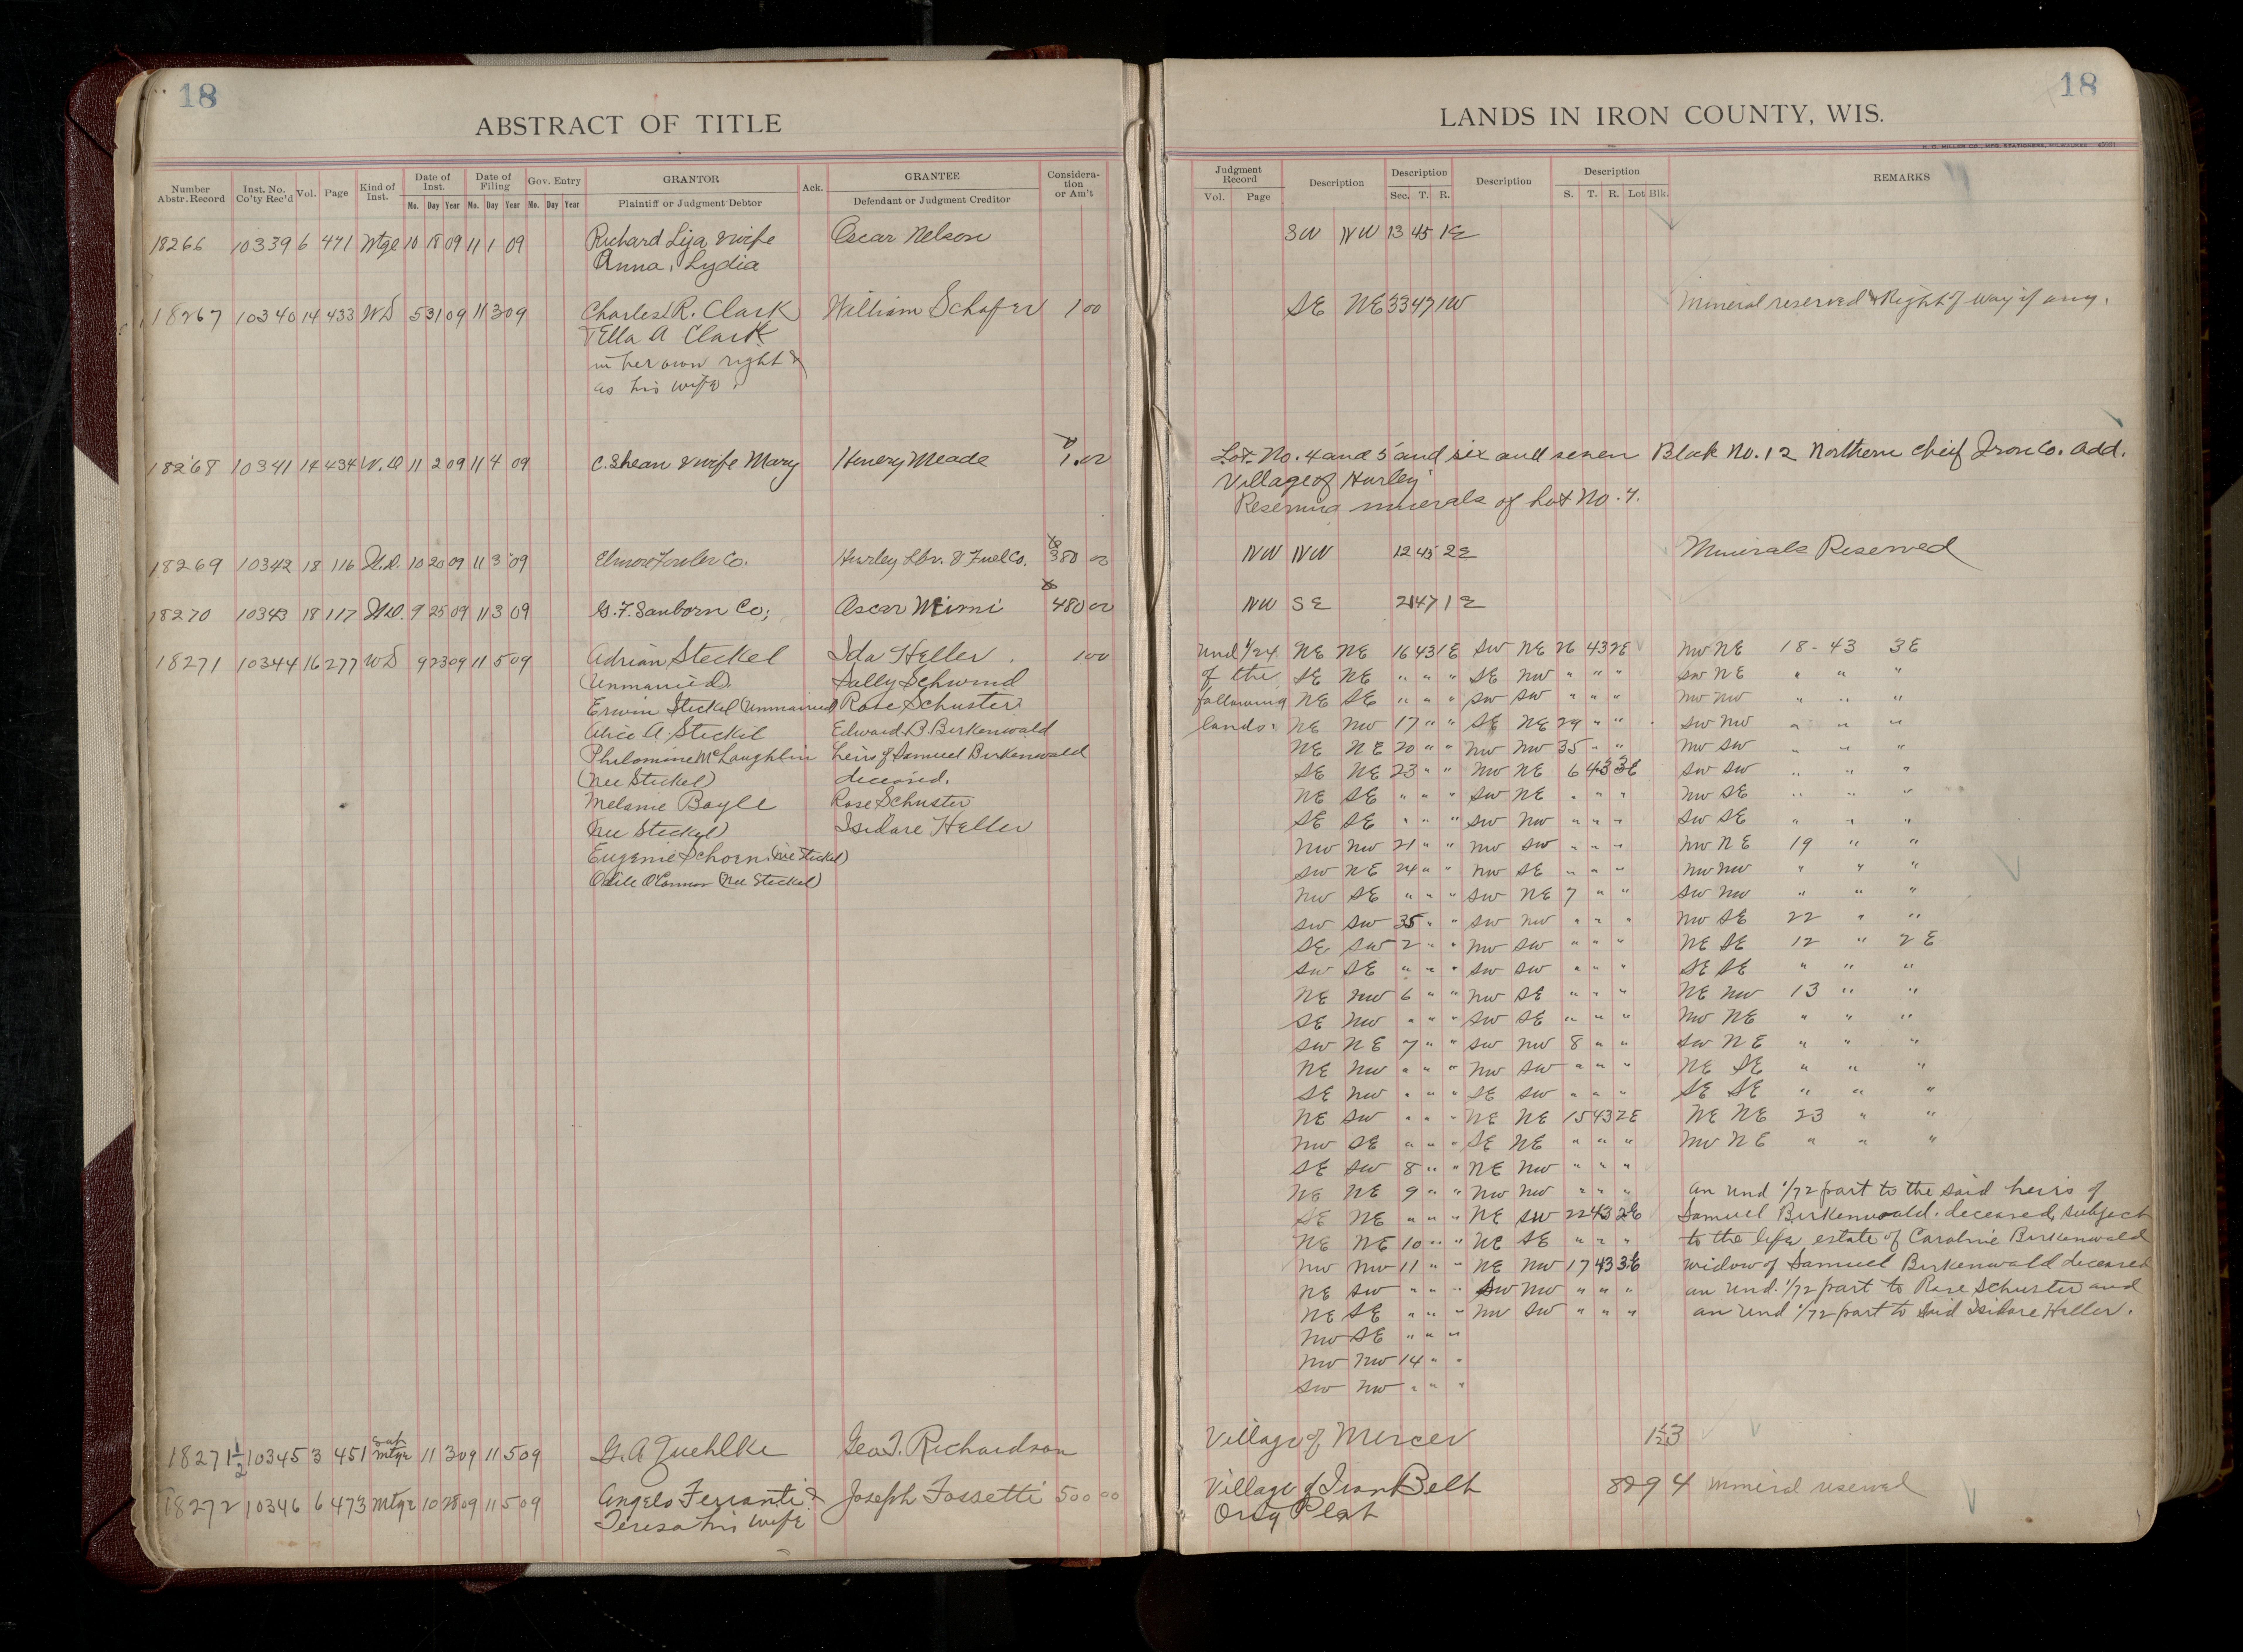 18
ABSTRACT OF TITLE
Number Abstr. Record Inst. No. Co'ty Rec'd Vol. Page Kind of Inst. Date of Inst. Mo. Day Year Date of Filing Mo. Day Year Gov. Entry Mo. Day Year GRANTOR Plaintiff or Judgment Debtor Ack. GRANTEE Defendant or Judgment Creditor Considera-tion or Am't
18266 10339 6 471 Mtge 10 18 09 11 1 09 Richard Lija & wife Oscar Nelson
Anna, Lydia
18267 10340 14 433 WD 5 31 09 11 3 09 Charles R. Clark William Schafer 1 00
& Ella A Clark
in her own right &
as his wife.
18268 10341 14 434 W.D 11 2 09 11 4 09 C. Shean & wife Mary Henery Meade 1.00
18269 10342 18 116 10 20 09 11 3 09 Hurley Lbr. & Fuel Co. 380 00
18270 10343 18 117 9 25 09 11 3 09 G. F. Sanborn Co; Oscar 480 00
18271 10344 16 277 WD 9 23 09 11 5 09 Adrian Steckel Ida Heller 1 00
(Unmarried) Sally Schwind
Erwin Steckel (Unmarried) Rose Schuster
Alice A. Steckel Edward B. Birkenwald
Philomine McLaughlin heirs of Samuel Birkenwald
(Nee Steckel) deceased.
Melanie Boyle Rose Schuster
(Nee Steckel) Isidore Heller
Eugenie Schoen (Nee Steckel)
Odile O'Connor (Nee Steckel)
18271 1/2 10345 3 451 Mtge 11 3 09 11 5 09 G. A. Geo. T. Richardson
18272 10346 6 473 Mtge 10 28 09 11 5 09 Angelo Ferranti & Joseph Fossetti 500 00
Teresa his wife
18
LANDS IN IRON COUNTY, WIS.
H. G. MILLER CO., MFG. STATIONERS, MILWAUKEE
Judgment Record Vol. Page Description Description Sec. T. R. Description Description S. T. R. Lot Blk. REMARKS
SW NW 13 45 1E
SE NE 33 47 1W Mineral reserved & Right of way if any.
Lot. No. 4 and 5 and six and seven Block No. 12 Northern Cheif Iron Co. Add.
Village of Hurley
Reserving minerals of Lot No. 7.
NW NW 12 45 2E Minerals Reserved
NW SE 21 47 1E
Und 1/24 NE NE 16 43 1E SW NE 26 43 2E NW NE 18 - 43 3E
of the SE NE " " " SE NW " " " SW NE " " "
following NE SE " " " SW SW " " " NW NW " " "
lands: NE NW 17 " " SE NE 29 " " SW NW " " "
NE NE 20 " " NW NW 35 " " NW SW " " "
SE NE 23 " " NW NE 6 43 3E SW SW " " "
NE SE " " " SW NE " " " NW SE " " "
SE SE " " " SW NW " " " SW SE " " "
NW NW 21 " " NW SW " " " NW NE 19 " "
SW NE 24 " " NW SE " " " NW NW " " "
NW SE " " " SW NE 7 " " SW NW " " "
SW SW 35 " " SW NW " " " NW SE 22 " "
SE SW 2 " " NW SW " " " NE SE 12 " 2E
SW SE " " " SW SW " " " SE SE " " "
NE NW 6 " " NW SE " " " NE NW 13 " "
SE NW " " " SW SE " " " NW NE " " "
SW NE 7 " " SW NW 8 " " SW NE " " "
NE NW " " " NW SW " " " NE SE " " "
SE NW " " " SE SW " " " SE SE " " "
NE SW " " " NE NE 15 43 2E NE NE 23 " "
NW SE " " " SE NE " " " NW NE " " "
SE SW 8 " " NE NW " " "
NE NE 9 " " NW NW " " " an Und 1/72 part to the said heirs of
SE NE " " " NE SW 22 43 2E Samuel Birkenwald, deceased, subject
NE NE 10 " " NE SE " " " to the life estate of Caroline Birkenwald
NW NW 11 " " NE NW 17 43 3E widow of Samuel Birkenwald deceased
NE SW " " " SW NW " " " an Und. 1/72 part to Rose Schuster and
NE SE " " " NW SW " " " an Und 1/72 part to said Isidore Heller.
NW SE " " "
NW NW 14 " "
SW NW " " "
Village of Mercer
Village of Iron Belt 8 29 4 Mineral reserved
Orig Plat